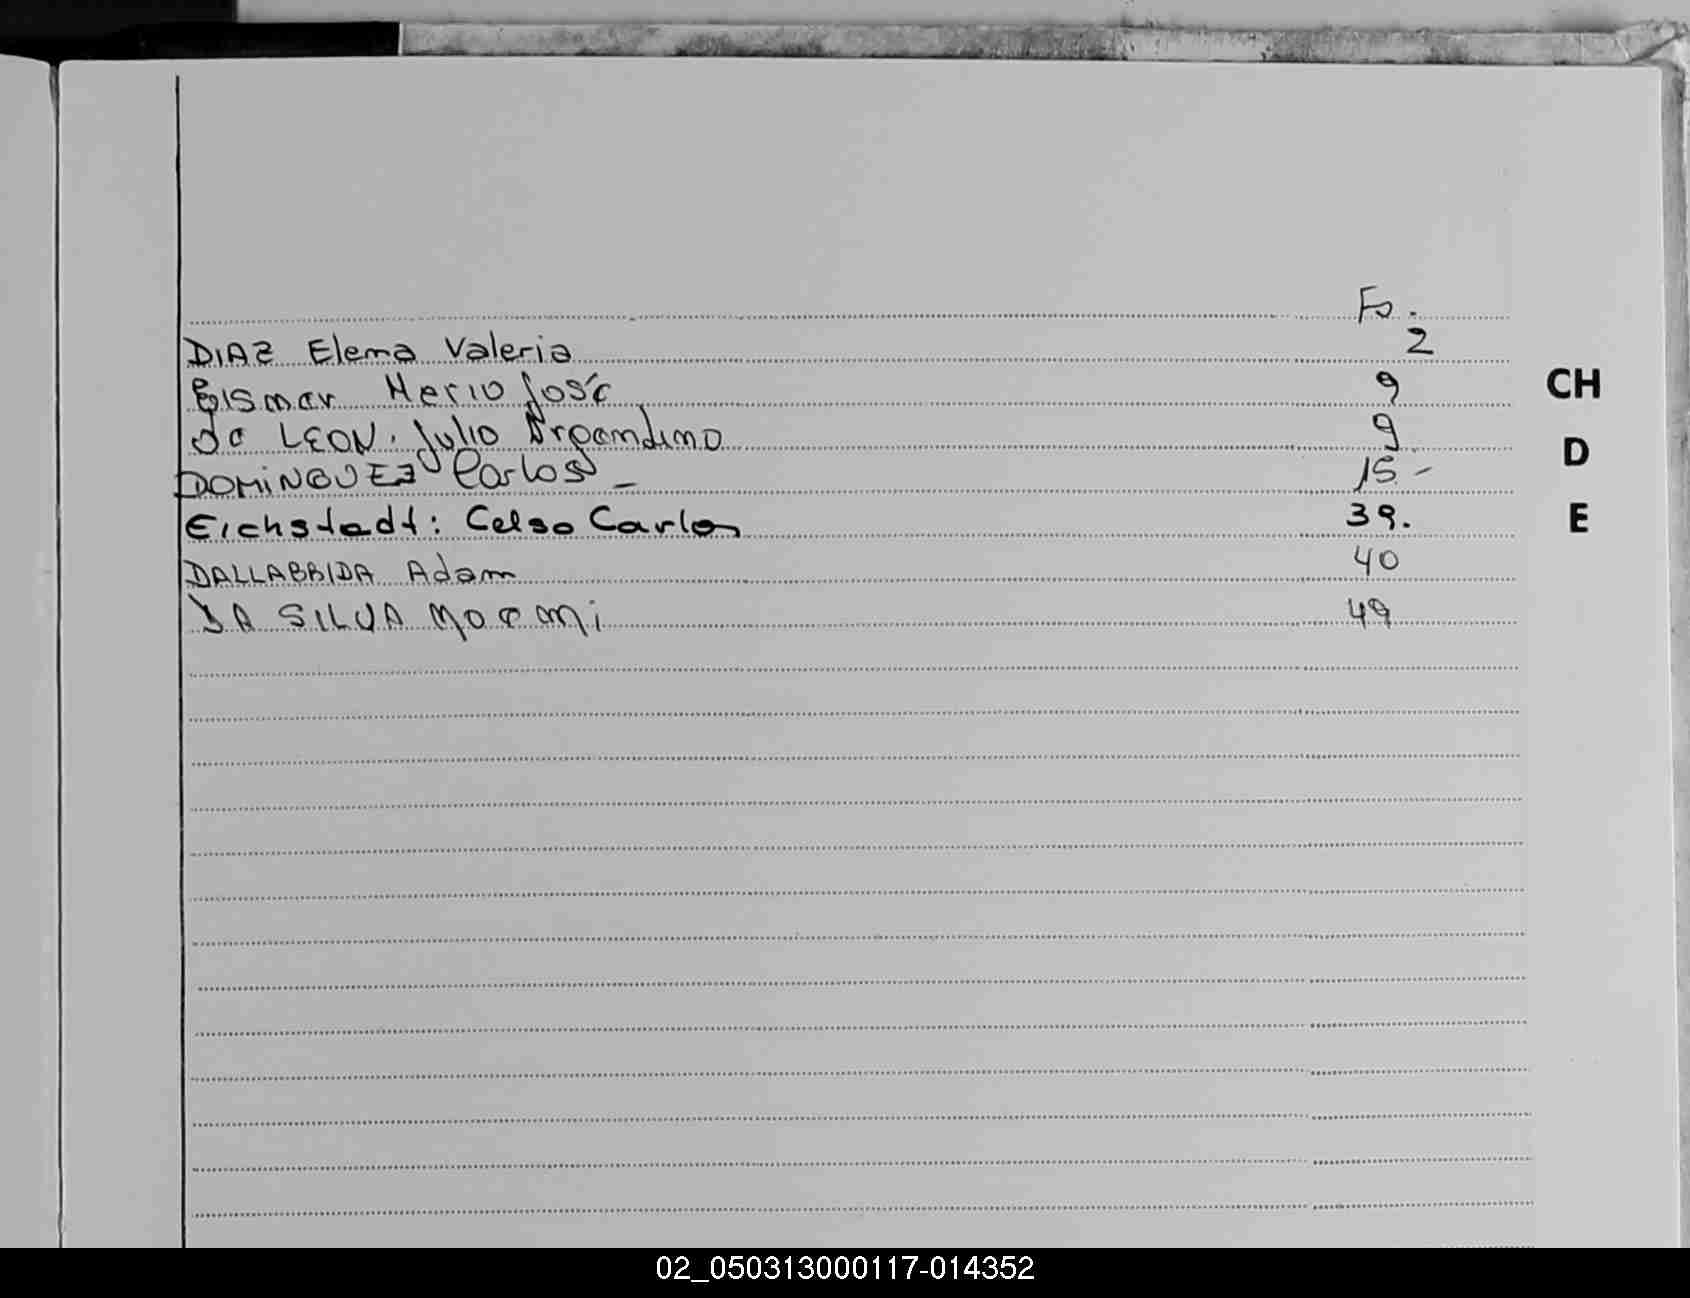 Fo.
DIAZ Elena Valeria 2
Eismar Mario José 9
CH
de LEON. Julio Argentino 9
D
DOMINGUEZ Carlos - 15 -
Eichstadt: Celso Carlos 39.
E
DALLABRIDA Adam 40
DA SILVA Noemi 49
02_050313000117-014352